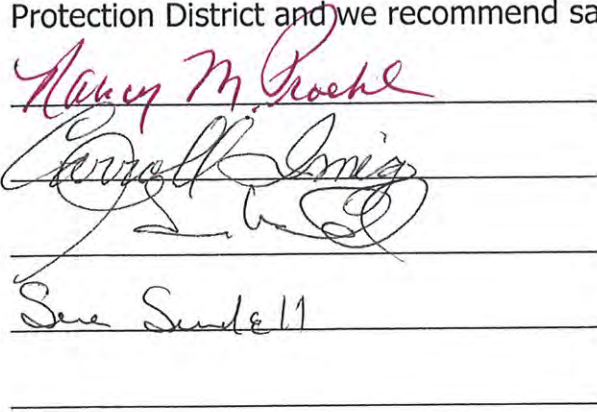 Protection District and we recommend sa
Nancy M. Proehl
Carroll Imig
Sue Sundell